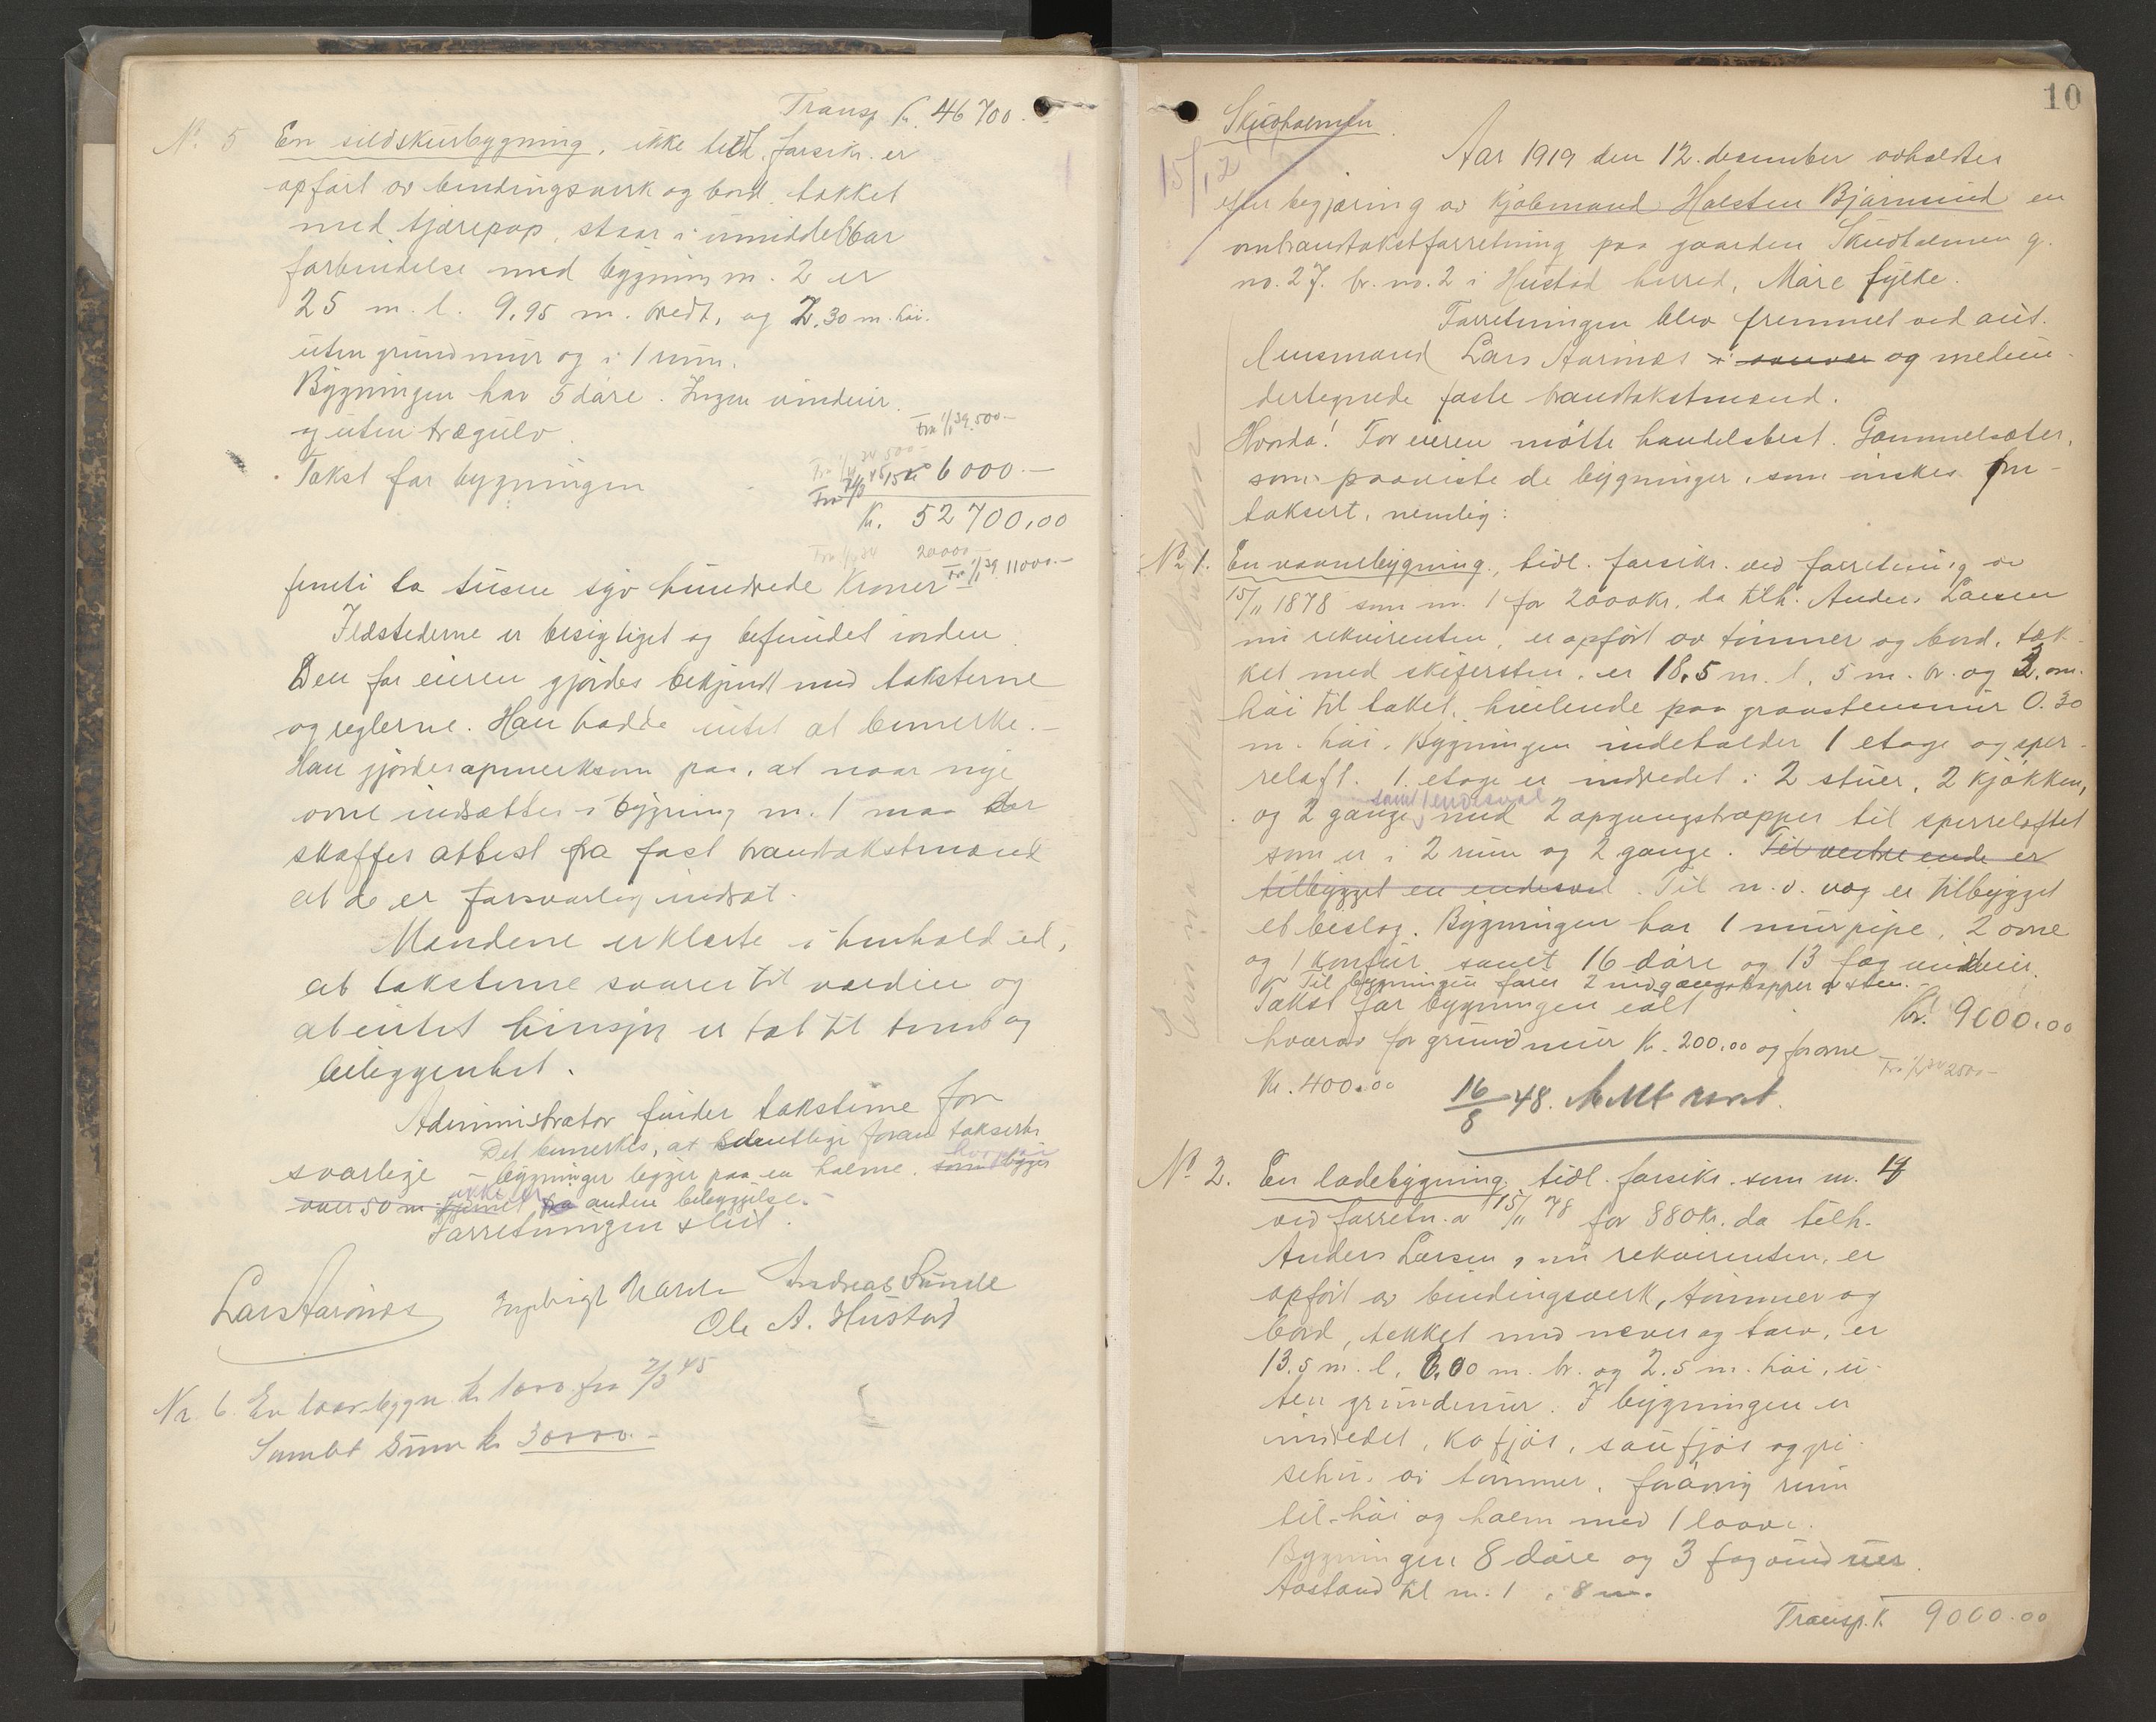 Transp Kr. 46 700.
No. 5 En sildskurbygning, ikke tidl. forsikr. er
opført av bindingsverk og bord, tækket
med tjærepap, staar i umiddelbar
forbindelse med bygning nr. 2 er
25 m. l. 9,95 m. bredt, og 2,30 m. høi.
uten grundmur og i 1 rum.
Bygningen har 5 døre. Ingen vinduer
og uten trægulv
Fra 1/1 39. 500.-
Takst for bygningen 6 000 -
Kr. 52 700,00
20000
Fra 1/1 39 11000.-
femti to tusen syv hundrede Kroner
Ildstederne er besigtiget og befundet i orden.
Den for eieren gjordes bekjendt med taksterne
og reglerne. Han hadde intet at bemerke. -
Han gjordes opmerksom paa, at naar nye
ovne indsættes i bygning nr. 1 maa der
skaffes attest fra fast brandtakstmand
at de er forsvarlig indsat.
Mændene erklærte i henhold ed,
at taksterne svarer til værdien og
at intet hinsyn er tat til tomt og
beliggenhet.
Administrator finder taksterne for
svarlige
Det bemerkes, at samtlige foran takserte
bygninger ligger paa en holme, som ligger
over 50 m fjernet fra anden bebyggelse. -
Forretningen slut.
Lars Aarønæs Ingebrigt Andreas Sunde
Ole A. Hustad
Nr. 6. En laavebygn. kr. 1000 fra 2/3 45
Samlet sum kr 30000.-
10
Skudholmen
15/12
Aar 1919 den 12. desember avholdtes
efter begjæring av Kjøbmand Halsten Bjørnsund en
ombrandtakstforretning paa gaarden Skudholmen g.
no. 27. br. no. 2 i Hustad herred, Møre fylke.
Forretningen blev fremmet ved aut.
lensmand Lars Aarønæs og medun-
dertegnede faste brandtakstmænd.
Hvorda! For eieren møtte handelsbest. Gammelsæter,
som paaviste de bygninger, som ønskes om-
taksert, nemlig:
No. 1. En vaanebygning, tidl. forsikr. ved forretning av
15/11 1878 som nr. 1 for 2000 kr. da tilh. Anders Larsen
nu rekvirenten, er opført av tømmer og bord, tæk-
ket med skifersten, er 18,5 m. l, 5 m. br. og 3, m.
høi til taket, hvilende paa graastensmur 0.30
m. høi. Bygningen indeholder 1 etage og sper-
reloft. 1. etage er indredet i 2 stuer, 2 kjøkken,
samt endesval
og 2 gange, med 2 opgangstrapper til sperreloftet
som er i 2 rum og 2 gange. Til vestre ende er
tilbygget en endesval. Til n. v. væg er tilbygget
et beslag. Bygningen har 1 murpipe, 2 ovne
og 1 komfur samt 16 døre og 13 fag vinduer.
Til bygningen fører 2 indgangstrapper av sten. -
Takst for bygningen ialt Kr. 9000,00
hvorav for grundmur Kr. 200,00 og for ovne
Kr. 400,00
16/8 48.
No. 2. En ladebygning tidl. forsikr. som nr. 4
ved forretn. av 15/11 78 for 880 kr. da tilh.
Anders Larsen, nu rekvirenten, er
opført av bindingsverk, tømmer og
bord, tækket med næver og torv, er
13.5 m. l, 6,00 m. br. og 2.5 m. høi, u-
ten grundmur. I bygningen er
indredet, kofjøs, saufjøs og gri-
sehus av tømmer, forøvrig rum
til høi og halm med 1 laave.
Bygningen 8 døre og 3 fag vinduer.
Avstand til nr. 1, 8 m.
Transp. K. 9000.00